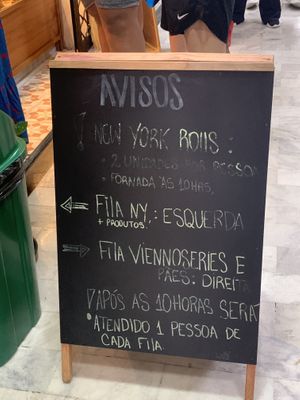 AVISOS
! NEW YORK ROLLS :
• 2 UNIDADES POR PESSOA
• FORNADA ÀS 10HRS,
← FILA NY, : ESQUERDA
+ PRODUTOS,
→ FILA VIENNOSERIES E
PÃES : DIREITA
! APÓS AS 10 HORAS SERÁ
• ATENDIDO 1 PESSOA DE
CADA FILA.